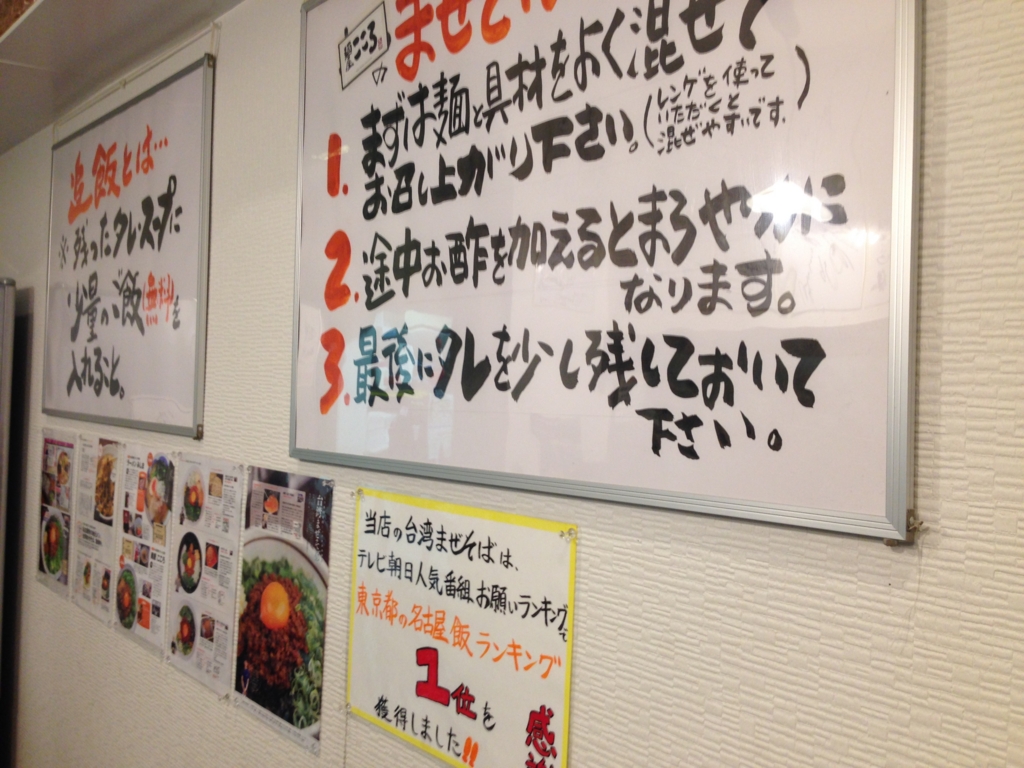 追飯とは…
※残ったタレ、スープに
少量のご飯(無料)を
入れること。
麺こころ
の
まぜそ
1. まずは麺と具材をよく混ぜて
お召し上がり下さい。
(レンゲを使って
いただくと
混ぜやすいです。)
2. 途中お酢を加えるとまろやかに
なります。
3. 最後にタレを少し残しておいて
下さい。
当店の台湾まぜそばは、
テレビ朝日人気番組、お願いランキングで
東京都の名古屋飯ランキング
1位を
獲得しました!!
感謝